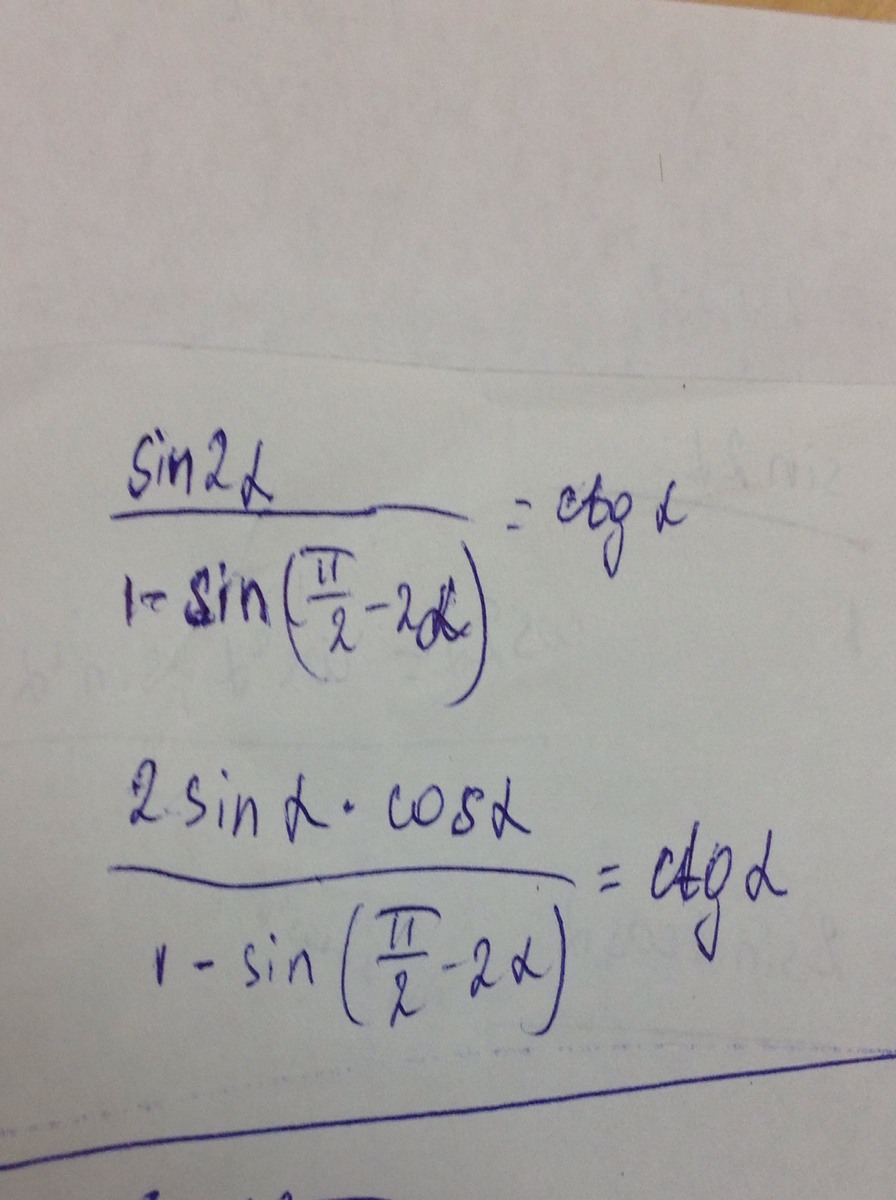 sin2α / 1 - sin(π/2 - 2α) = ctg α
2 sin α · cos α / 1 - sin(π/2 - 2α) = ctg α